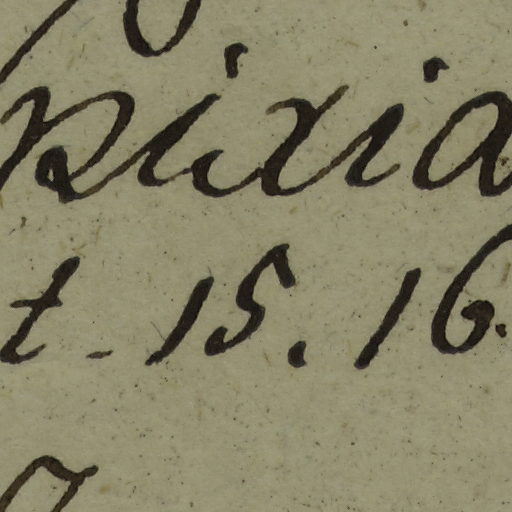 pixia
t. 15. 16.